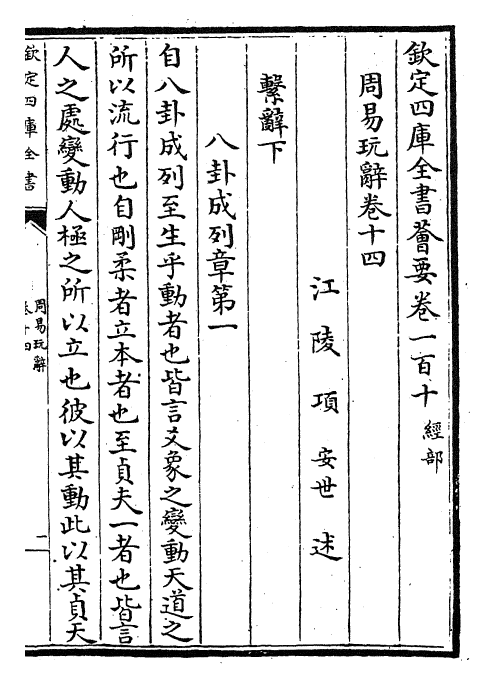 欽定四庫全書薈要卷一百十 經部
周易玩辭卷十四
江陵項安世述
繫辭下
八卦成列章第一
自八卦成列至生乎動者也皆言爻象之變動天道之
所以流行也自剛柔者立本者也至貞夫一者也皆言
人之處變動人極之所以立也彼以其動此以其貞天
欽定四庫全書
周易玩辭
卷十四
二